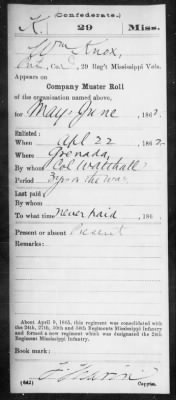 (Confederate.)
K 29 Miss.
Wm Knox,
Pvt, Co. , 29 Reg't Mississippi Vols.
Appears on
Company Muster Roll
of the organization named above,
for May, June , 1862.
Enlisted:
When Apl 22 , 1862.
Where Grenada,
By whom Col Walthall
Period 3 yrs or the war
Last paid:
By whom
To what time never paid , 186 .
Present or absent Present
Remarks:
About April 9, 1865, this regiment was consolidated with
the 24th, 27th, 30th and 34th Regiments Mississippi Infantry
and formed a new regiment which was designated the 24th
Regiment Mississippi Infantry.
Book mark:
(642) Copyist.